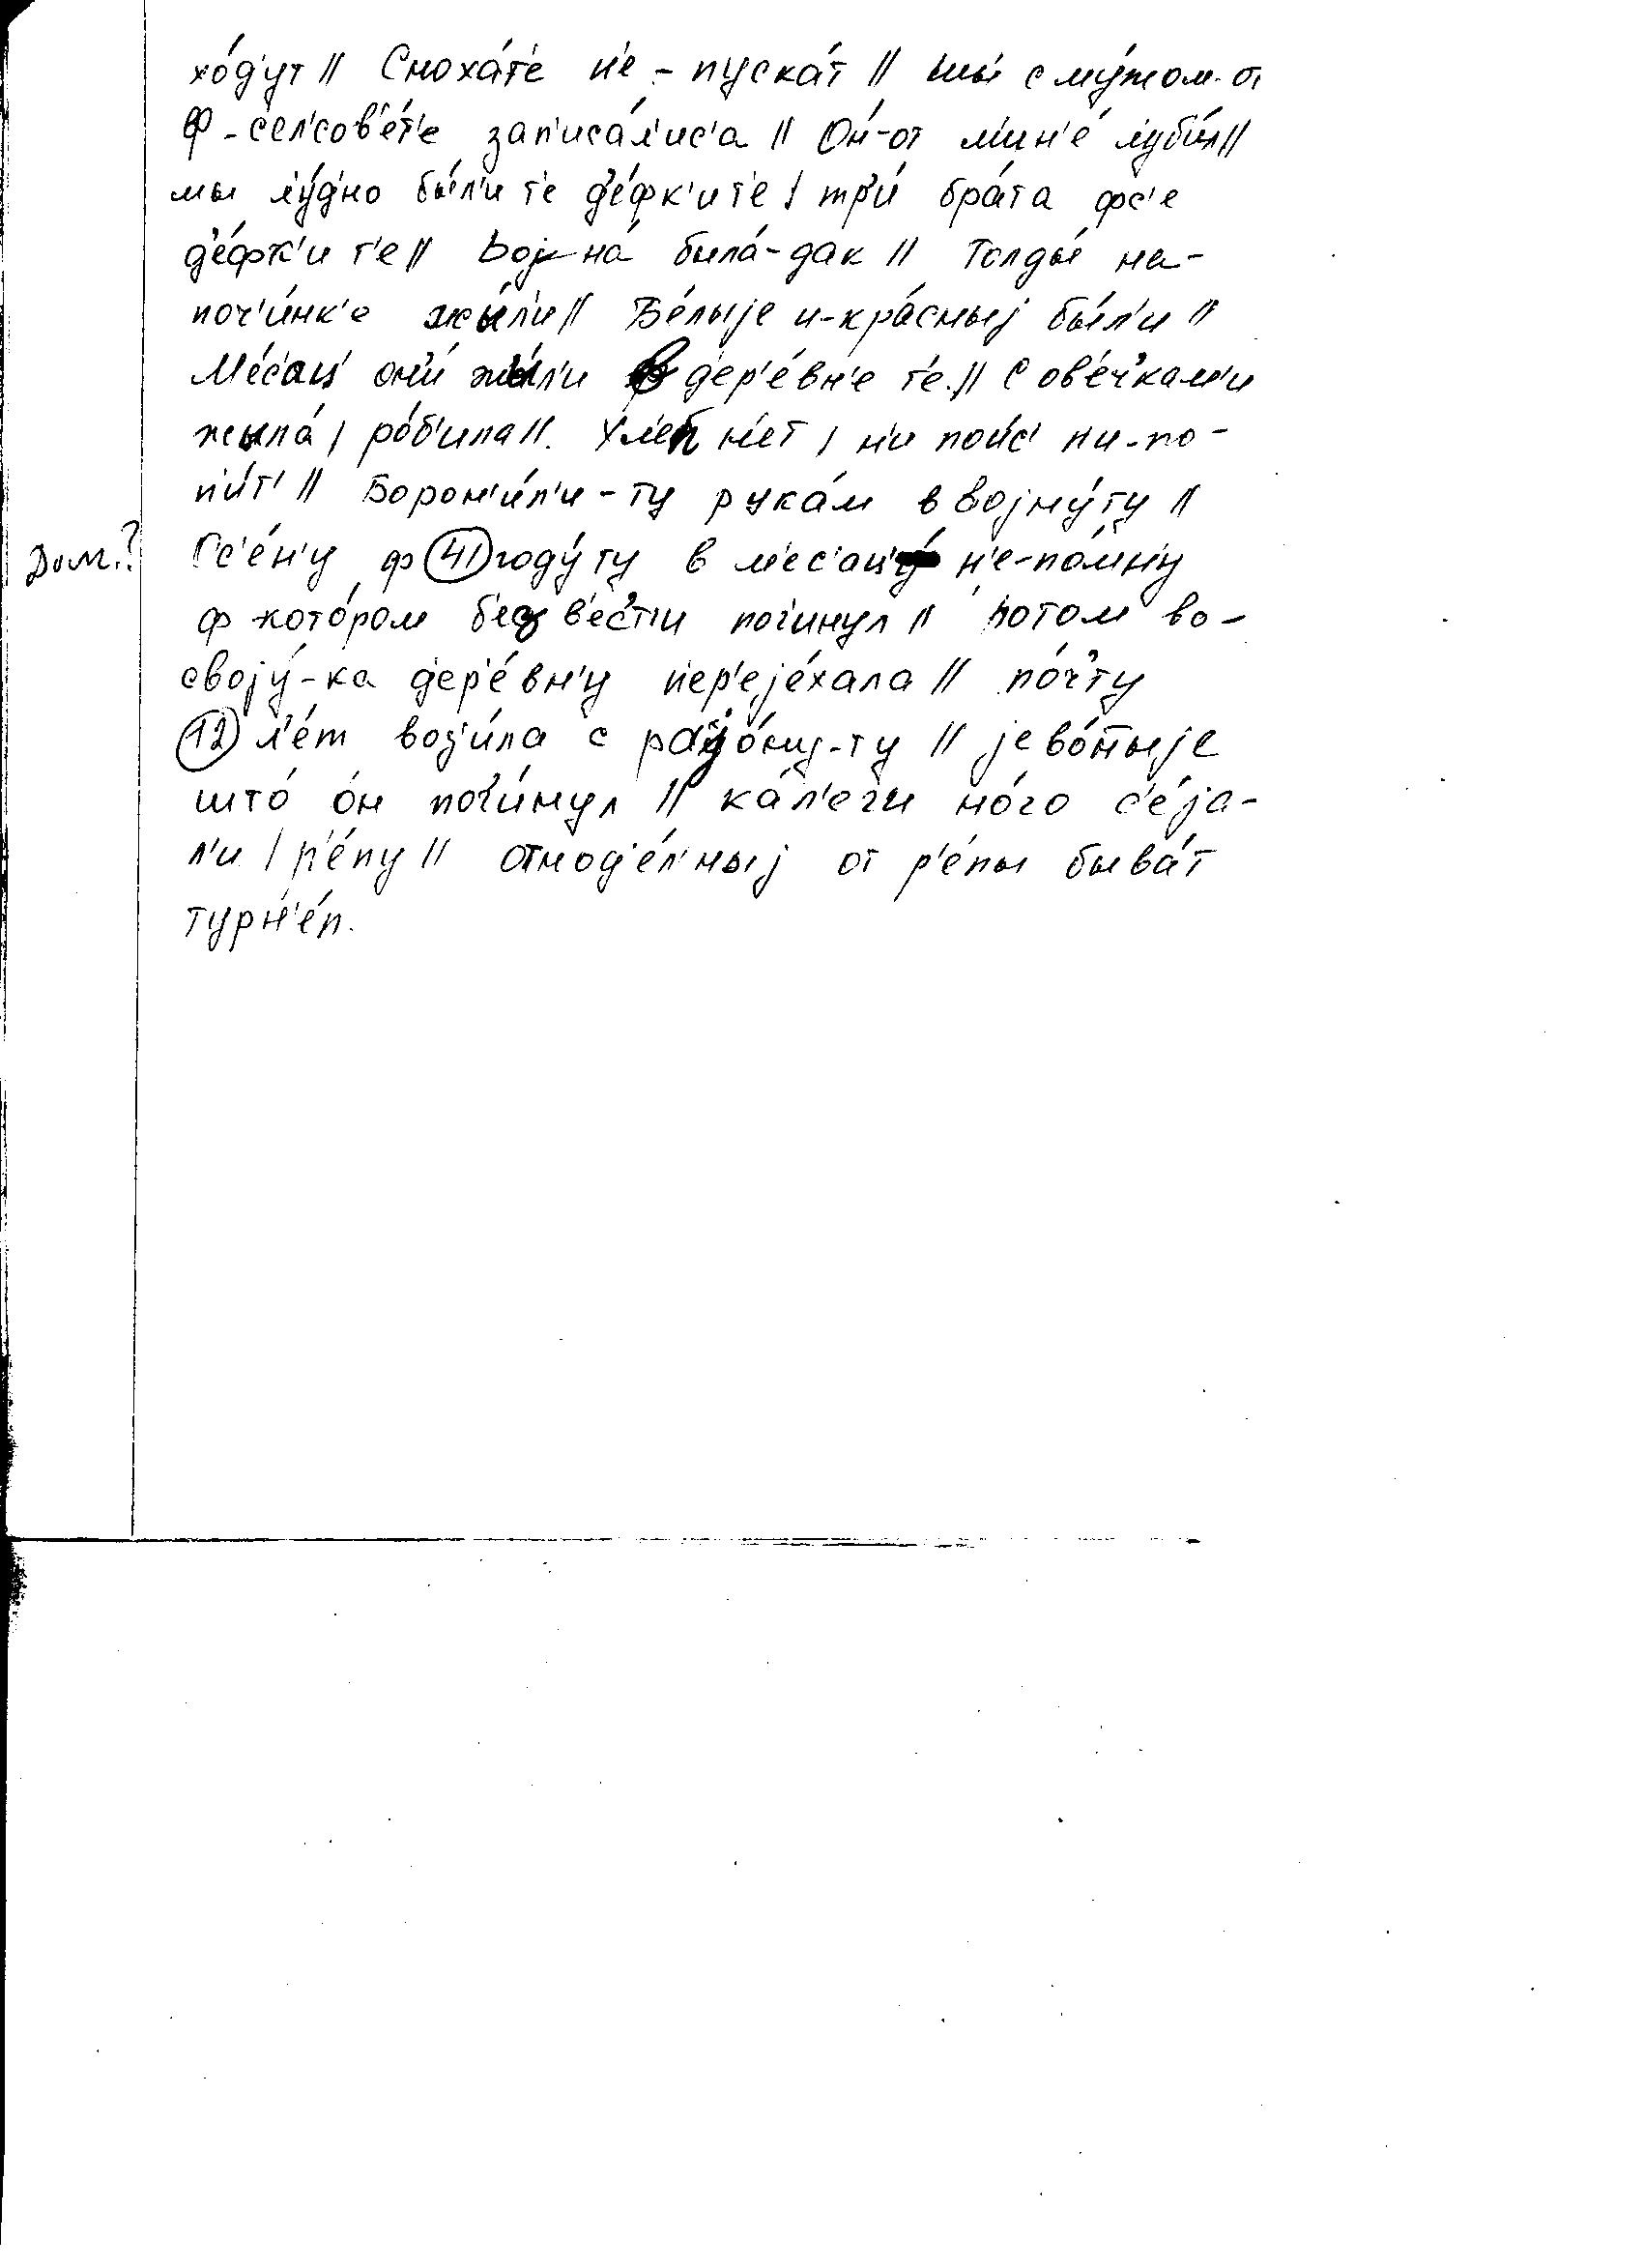 хо́д'ут // Снохат'е н'е - пуска́т // мы́ с му́жом-от
ф-с'ел'сов'е́т'е зап'иса́л'ис'а // О́н-от м'ин'е́ л'уб'и́л //
мы л'у́дно бы́л'и т'е д'е́фк'и т'е / тр'и́ бра́та фс'е
д'е́фк'и т'е // Војна́ была́-дак // Толды́ на-
поч'и́нк'е жы́л'и // Бе́лыје и-кра́сныј бы́л'и //
М'е́с'ац' он'и́ жы́л'и в д'ер'е́вн'е т'е // С ов'е́ч'кам'и
жыла́ / ро́б'ила // Хл'еп н'е́т / н'и пои́с' ни-по-
п'и́т' // Борон'и́л'и-ту рука́м в војну́ ту //
Ос'е́н'у ф 41 году́ ту в м'ес'ац'у́ н'е-по́мн'у
ф кото́ром б'ез в'е́с'т'и пог'инул // Потом во-
својy-ка д'ер'е́вн'у п'ер'еје́хала // по́ч'ту
12 л'е́т воз'и́ла с рајо́ну-ту // јево́тныје
што́ о́н пог'и́нул // ка́л'еги но́го с'е́ја-
л'и / р'е́пу // отнод'е́л'ныј от р'е́пы быва́т
турн'е́п.
Дом.?